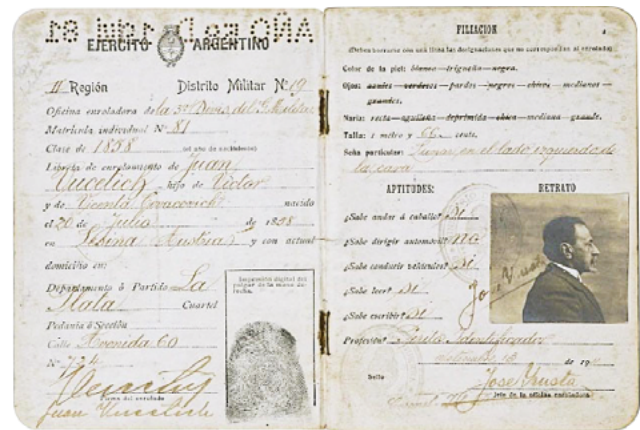 EJERCITO ARGENTINO
II Región Distrito Militar Nº 19
Oficina enroladora de la 3ª Divis. del D. Militar
Matrícula individual Nº 81
Clase de 1858 (el año de nacimiento)
Libreta de enrolamiento de Juan
Vucetich hijo de Victor
y de Vicenta Covacevich nacido
el 20 de Julio de 1858
en Lesina (Austria) y con actual
domicilio en:
Departamento ó Partido La
Plata Cuartel
Pedanía ó Sección
Calle Avenida 60
Nº 724
Firma del enrolado
Juan Vucetich
Impresión digital del
pulgar de la mano de-
recha.
FILIACION
(Deben borrarse con una línea las designaciones que no correspondan al enrolado)
Color de la piel: blanco - trigueño - negro.
Ojos: azules - verdosos - pardos - negros - chicos - medianos -
grandes.
Nariz: recta - aguileña - deprimida - chica - mediana - grande.
Talla: 1 metro y 66 cents.
Seña particular: Lunar en el lado izquierdo de
la cara
APTITUDES:
¿Sabe andar á caballo? Si
¿Sabe dirigir automóvil? no
¿Sabe conducir vehículos? Si
¿Sabe leer? Si
¿Sabe escribir? Si
Profesión? Perito Identificador
de 191
Sello
Jose
Jefe de la oficina enroladora
RETRATO
Jose